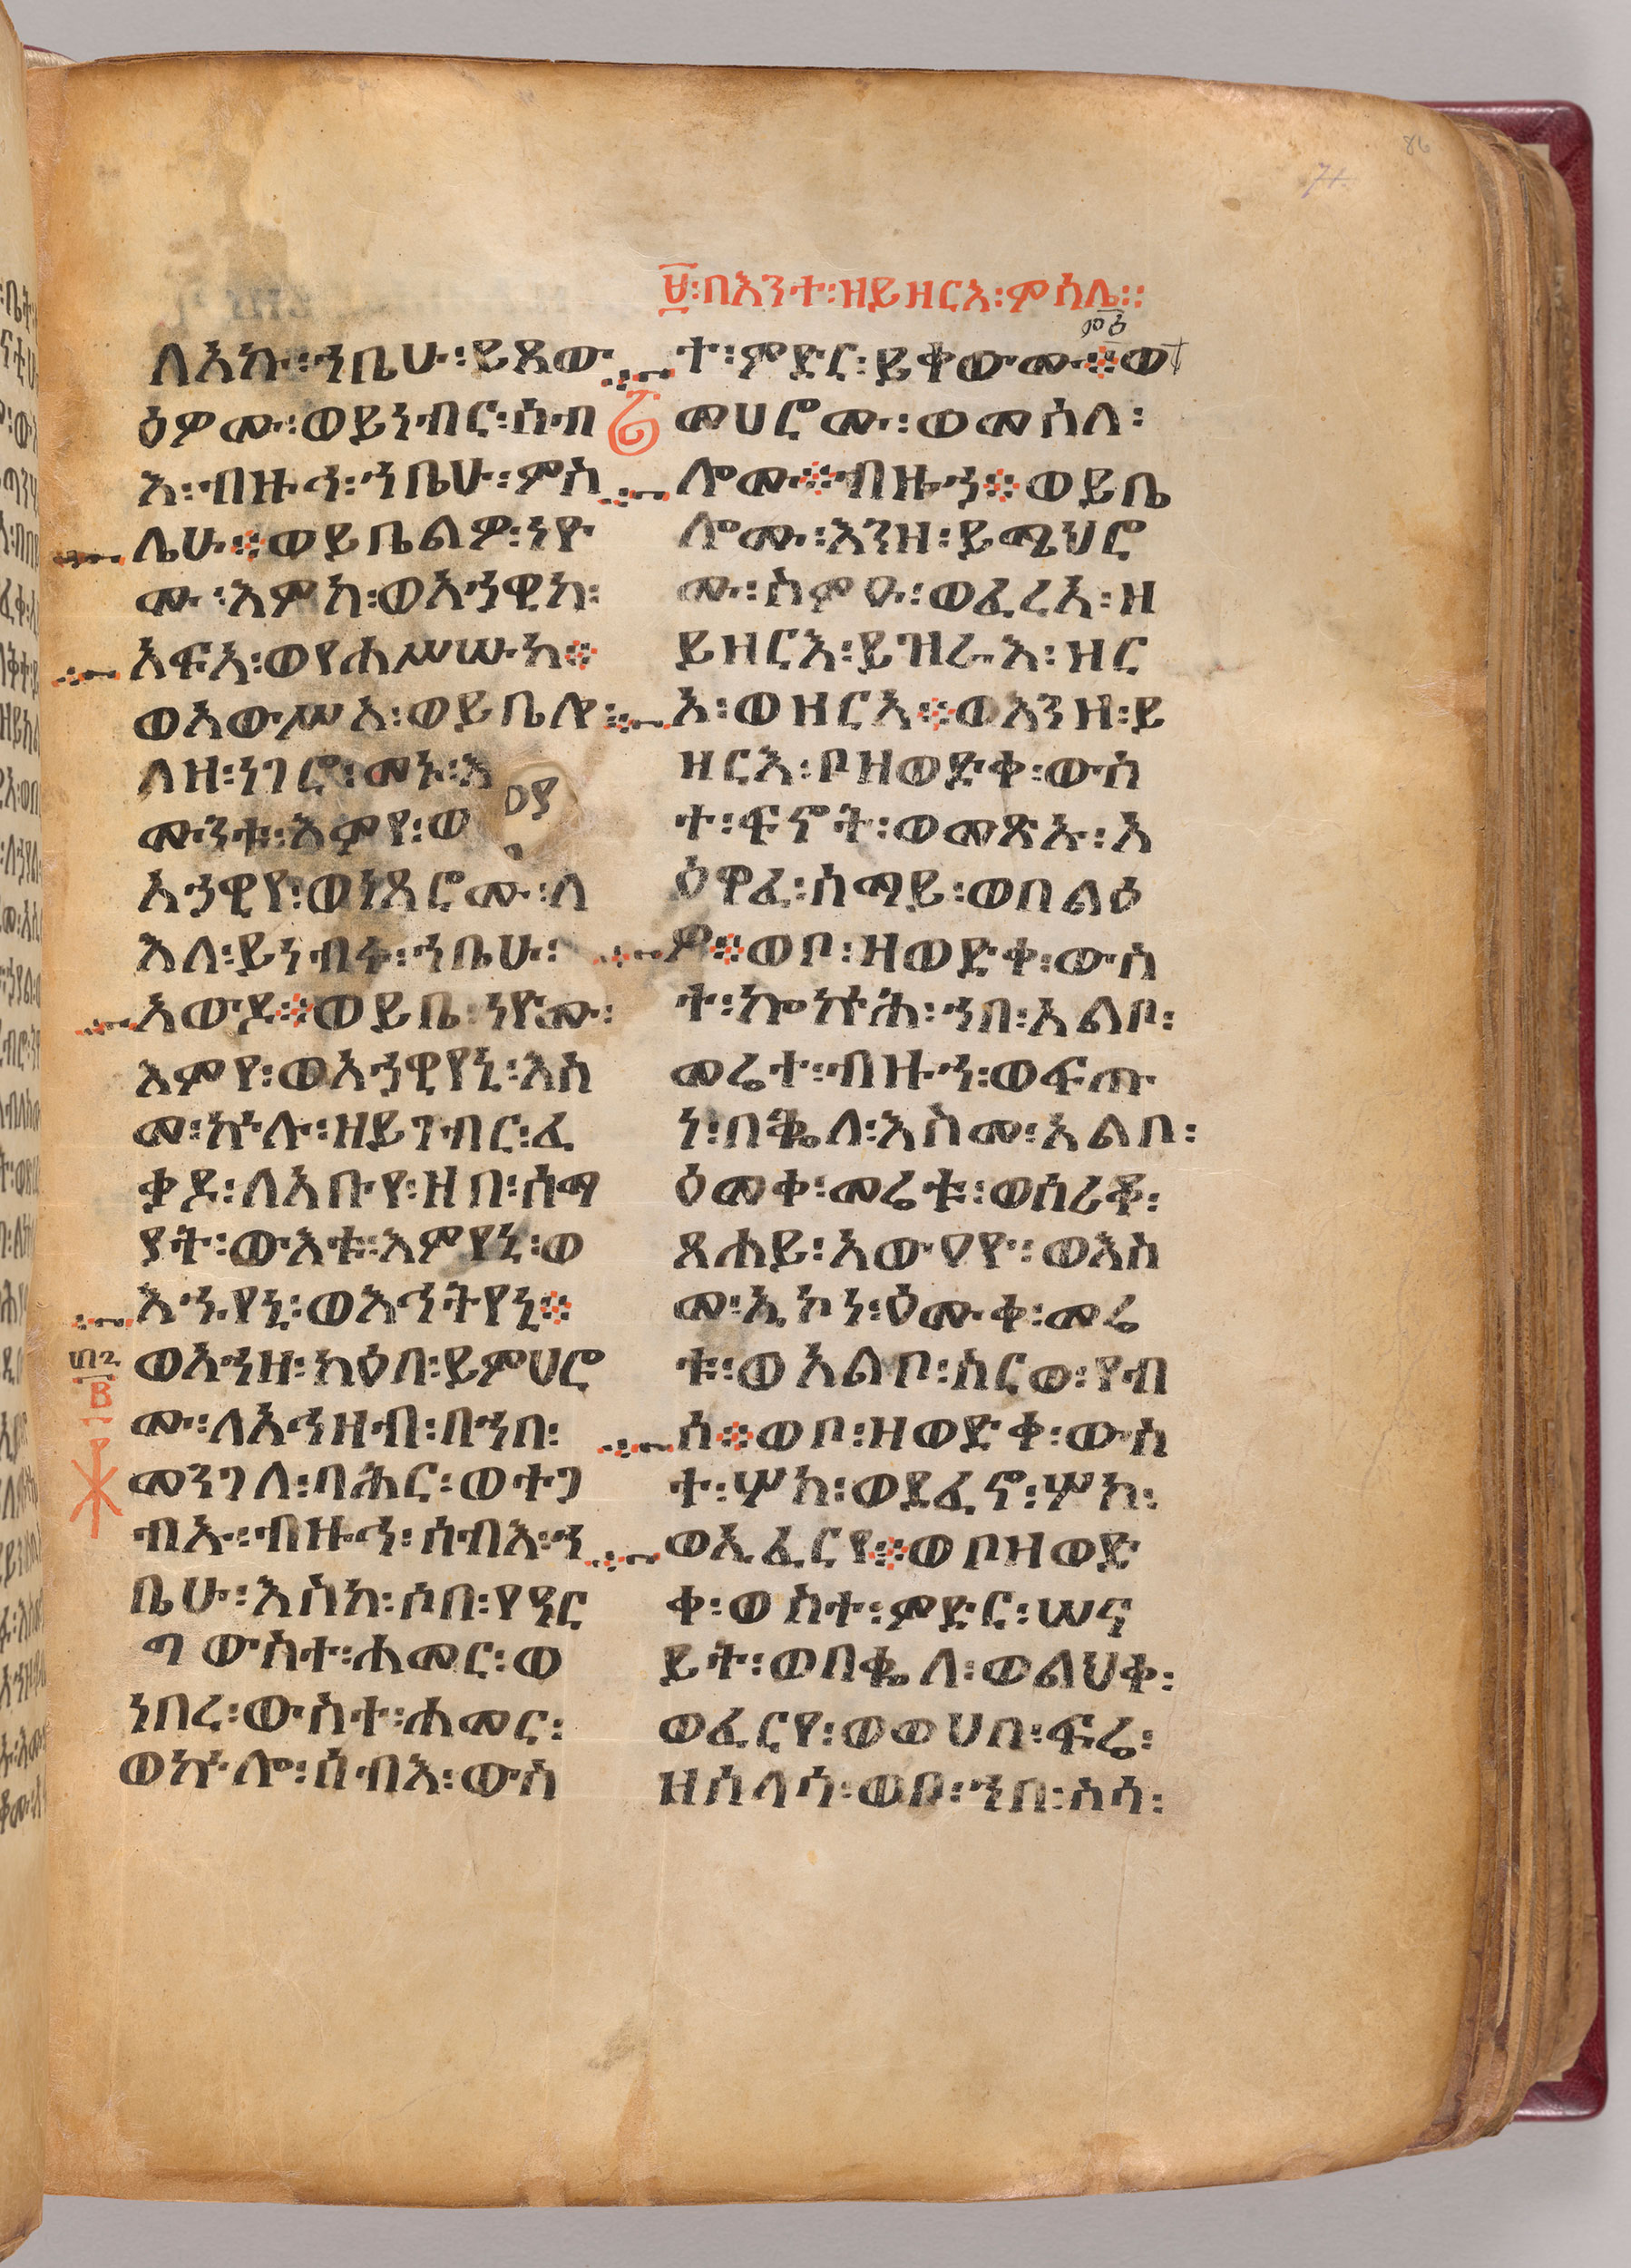 86
74
፱፡በእንተ፡ዘይዘርእ፡ምሳሌ፡፡
ለአኩ፡ኀቤሁ፡ይጸው
ዕዎሙ፡ወይነብር፡ሰብ
እ፡ብዙኅ፡ኀቤሁ፡ምስ
ሌሁ፨ወይቤልዎ፡ነዮ
ሙ፡እምከ፡ወአኀዊከ፡
አፍአ፡ወየሐሥሡከ፨
ወአውሥአ፡ወይቤሎ፡
ለዘ፡ነገሮ፡መኑ፡እ
ሙንቱ፡እምየ፡ወ
አኀዊየ፡ወነጸሮሙ፡ለ
እለ፡ይነብሩ፡ኀቤሁ፡
አውዶ፨ወይቤ፡ነዮሙ፡
እምየ፡ወአኀዊየኒ፡እስ
መ፡ኵሉ፡ዘይገብር፡ፈ
ቃዶ፡ለአቡየ፡ዘበ፡ሰማ
ያት፡ውእቱ፡እምየኒ፡ወ
እኁየኒ፡ወእኅትየኒ፨
ወእንዘ፡ካዕበ፡ይምህሮ
ሙ፡ለአሕዛብ፡በኀበ፡
መንገለ፡ባሕር፡ወተጋ
ብኡ፡ብዙኅ፡ሰብእ፡ኀ
ቤሁ፡እስከ፡ሶበ፡የዓር
ግ ውስተ፡ሐመር፡ወ
ነበረ፡ውስተ፡ሐመር፡
ወኵሎ፡ሰብእ፡ውስ
ተ፡ምድር፡ይቀውሙ፨ወ
መሀሮሙ፡ወመሰለ፡
ሎሙ፨ብዙኀ፨ወይቤ
ሎሙ፡እንዘ፡ይሜህሮ
ሙ፡ስምዑ፡ወፈረአ፡ዘ
ይዘርእ፡ይዝራእ፡ዘር
አ፡ወዘርአ፨ወእንዘ፡ይ
ዘርእ፡ቦዘወድቀ፡ውስ
ተ፡ፍኖት፡ወመጽኡ፡አ
ዕዋፈ፡ሰማይ፡ወበልዕ
ዎ፨ወቦ፡ዘወድቀ፡ውስ
ተ፡ኰኵሕ፡ኀበ፡አልቦ፡
መሬተ፡ብዙኀ፡ወፍጡ
ነ፡በቈለ፡እስመ፡አልቦ፡
ዕመቀ፡መሬቱ፡ወሰሪቆ፡
ፀሐይ፡አውዐዮ፡ወእስ
መ፡ኢኮነ፡ዕሙቀ፡መሬ
ቱ፡ወአልቦ፡ስርወ፡የብ
ሰ፨ወቦ፡ዘወድቀ፡ውስ
ተ፡ሦከ፡ወደፈኖ፡ሦክ፡
ወኢፈርየ፨ወቦዘወድ
ቀ፡ወስተ፡ምድር፡ሠና
ይት፡ወበቈለ፡ወልህቀ፡
ወፈርየ፡ወወሀበ፡ፍሬ፡
ዘሰላሳ፡ወቦ፡ኀበ፡ስሳ፡